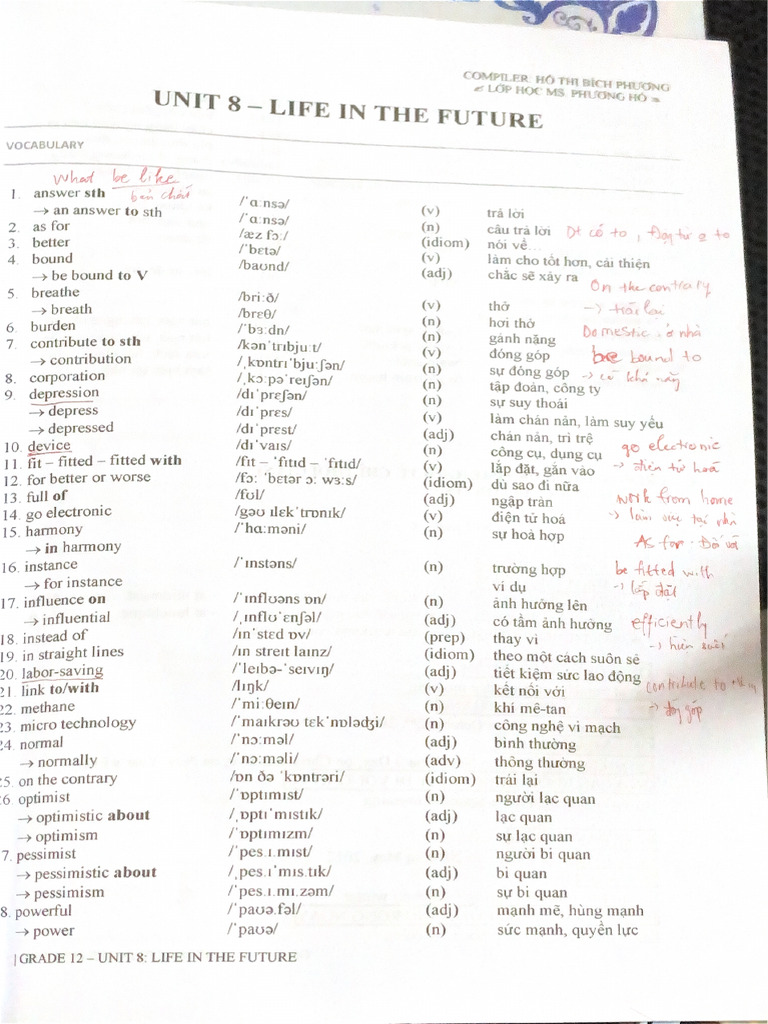 COMPILER: HỒ THỊ BÍCH PHƯƠNG
LỚP HỌC MS. PHƯƠNG HỒ
UNIT 8 – LIFE IN THE FUTURE
VOCABULARY
What be like
bản chất
1. answer sth /ˈɑːnsə/ (v) trả lời
→ an answer to sth /ˈɑːnsə/ (n) câu trả lời Dt có to, Động từ 0 to
2. as for /æz fɔː/ (idiom) nói về...
3. better /ˈbetə/ (v) làm cho tốt hơn, cải thiện
4. bound /baʊnd/ (adj) chắc sẽ xảy ra
→ be bound to V
On the contrary
5. breathe /briːð/ (v) thở → trái lại
→ breath /breθ/ (n) hơi thở
6. burden /ˈbɜːdn/ (n) gánh nặng Domestic: ở nhà
7. contribute to sth /kənˈtrɪbjuːt/ (v) đóng góp be bound to
→ contribution /ˌkɒntrɪˈbjuːʃən/ (n) sự đóng góp → có khả năng
8. corporation /ˌkɔːpəˈreɪʃən/ (n) tập đoàn, công ty
9. depression /dɪˈpreʃən/ (n) sự suy thoái
→ depress /dɪˈpres/ (v) làm chán nản, làm suy yếu
→ depressed /dɪˈprest/ (adj) chán nản, trì trệ
10. device /dɪˈvaɪs/ (n) công cụ, dụng cụ go electronic
11. fit – fitted – fitted with /fɪt – ˈfɪtɪd – ˈfɪtɪd/ (v) lắp đặt, gắn vào → điện tử hoá
12. for better or worse /fɔː ˈbetər ɔː wɜːs/ (idiom) dù sao đi nữa
13. full of /fʊl/ (adj) ngập tràn work from home
14. go electronic /gəʊ ɪlekˈtrɒnɪk/ (v) điện tử hoá → làm việc tại nhà
15. harmony /ˈhɑːməni/ (n) sự hoà hợp
→ in harmony As for: Đối với
16. instance /ˈɪnstəns/ (n) trường hợp be fitted with
→ for instance ví dụ → lắp đặt
17. influence on /ˈɪnflʊəns ɒn/ (n) ảnh hưởng lên
→ influential /ˌɪnflʊˈenʃəl/ (adj) có tầm ảnh hưởng efficiently
18. instead of /ɪnˈsted ɒv/ (prep) thay vì → hiệu suất
19. in straight lines /ɪn streit laɪnz/ (idiom) theo một cách suôn sẻ
20. labor-saving /ˈleɪbə-ˈseɪvɪŋ/ (adj) tiết kiệm sức lao động
21. link to/with /lɪŋk/ (v) kết nối với contribute to
22. methane /ˈmiːθeɪn/ (n) khí mê-tan → đóng góp
23. micro technology /ˈmaɪkrəʊ tɛkˈnɒləʤi/ (n) công nghệ vi mạch
24. normal /ˈnɔːməl/ (adj) bình thường
→ normally /ˈnɔːməli/ (adv) thông thường
25. on the contrary /ɒn ðə ˈkɒntrəri/ (idiom) trái lại
6. optimist /ˈɒptɪmɪst/ (n) người lạc quan
→ optimistic about /ˌɒptɪˈmɪstɪk/ (adj) lạc quan
→ optimism /ˈɒptɪmɪzm/ (n) sự lạc quan
7. pessimist /ˈpes.ɪ.mɪst/ (n) người bi quan
→ pessimistic about /ˌpes.ɪˈmɪs.tɪk/ (adj) bi quan
→ pessimism /ˈpes.ɪ.mɪ.zəm/ (n) sự bi quan
8. powerful /ˈpaʊə.fəl/ (adj) mạnh mẽ, hùng mạnh
→ power /ˈpaʊə/ (n) sức mạnh, quyền lực
|GRADE 12 – UNIT 8: LIFE IN THE FUTURE